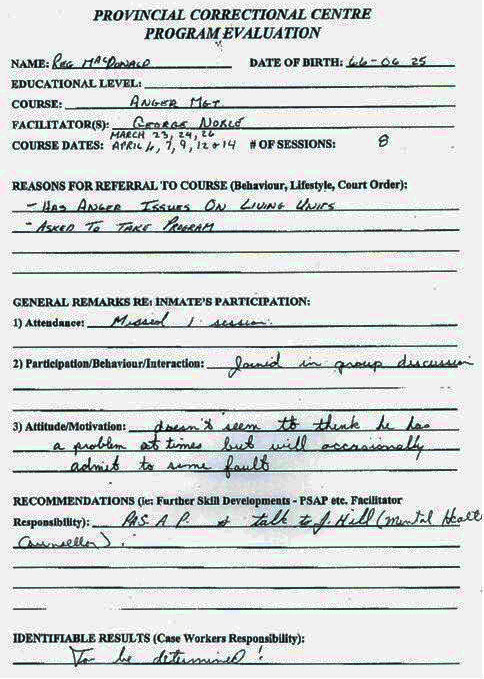 PROVINCIAL CORRECTIONAL CENTRE
PROGRAM EVALUATION
NAME: REG MACDONALD DATE OF BIRTH: 66-06 25
EDUCATIONAL LEVEL:
COURSE: ANGER MGT
FACILITATOR(S): GEORGE NOBLE
MARCH 23, 24, 26
COURSE DATES: APRIL 6, 7, 9, 12 & 14 # OF SESSIONS: 8
REASONS FOR REFERRAL TO COURSE (Behaviour, Lifestyle, Court Order):
- HAS ANGER ISSUES ON LIVING UNITS
- ASKED TO TAKE PROGRAM
GENERAL REMARKS RE: INMATE'S PARTICIPATION:
1) Attendance: Missed 1 session.
2) Participation/Behaviour/Interaction: Joined in group discussion
3) Attitude/Motivation: doesn't seem to think he has
a problem at times but will occasionally
admit to some fault
RECOMMENDATIONS (ie: Further Skill Developments - PSAP etc. Facilitator
Responsibility): P.A.S.A.P. & talk to J. Hill (Mental Health
Counsellor).
IDENTIFIABLE RESULTS (Case Workers Responsibility):
To be determined!